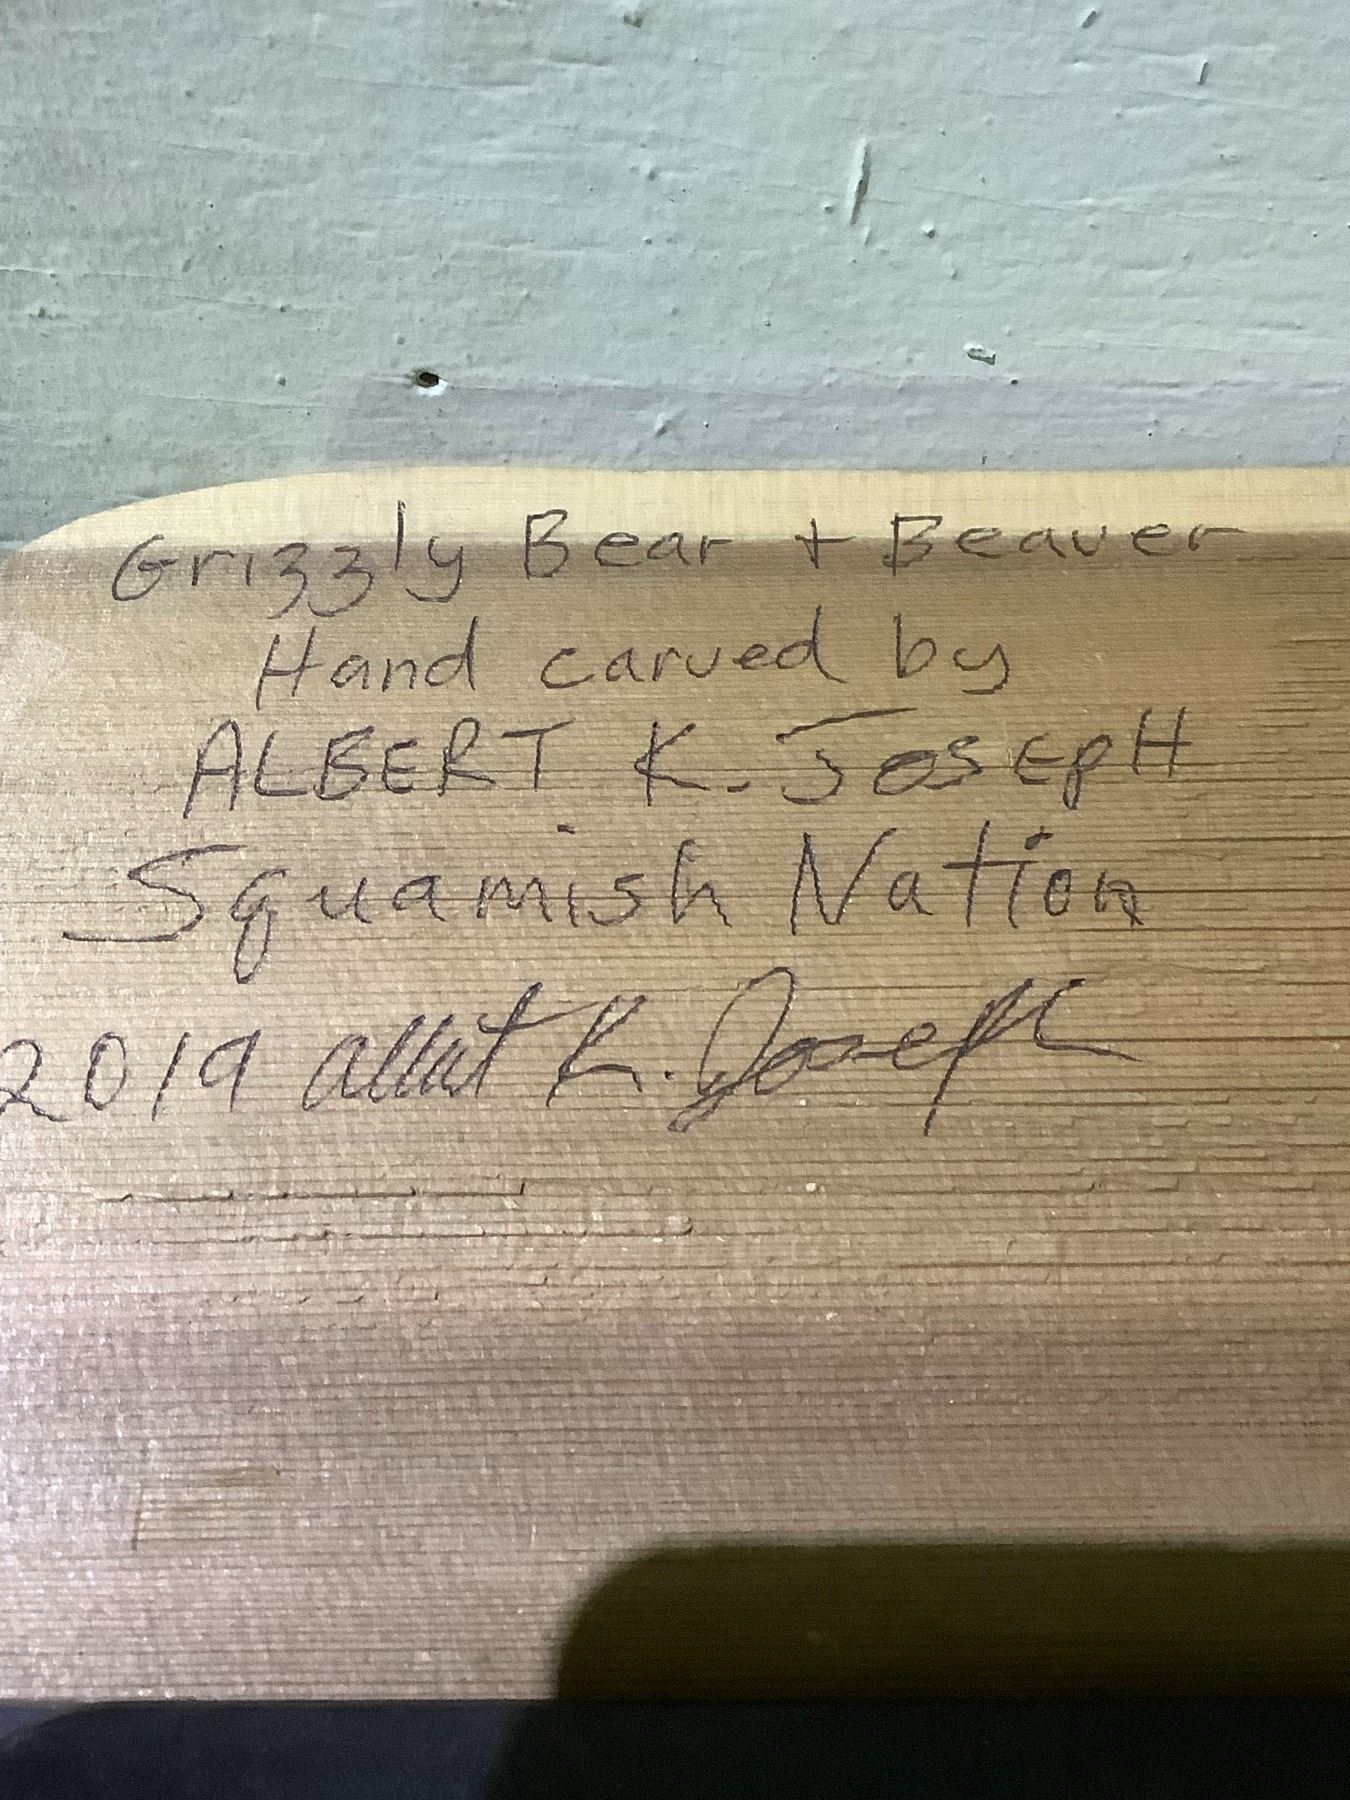 Grizzly Bear + Beaver
Hand carved by
ALBERT K. JOSEPH
Squamish Nation
2019 Albert K. Joseph